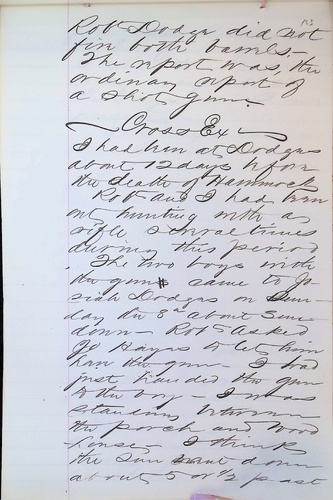 123
Rob Dodge did not
fire both barrels.-
The report was, the
ordinary report of
a shot gun.
Cross Ex
I had been at Dodges
about 12 days before
the death of Hammock
Rob and I had been
out hunting with a
rifle several times
during this period
The two boys with
the gun came to Jo
siah Dodges on Sun-
day the 8th about Sun
down - Rob asked
Jo Hayes to let him
have the gun - I had
just handed the gun
to the boy - I was
standing between
the porch and wood
- I think
the Sun went down
about 5 or 1/2 past